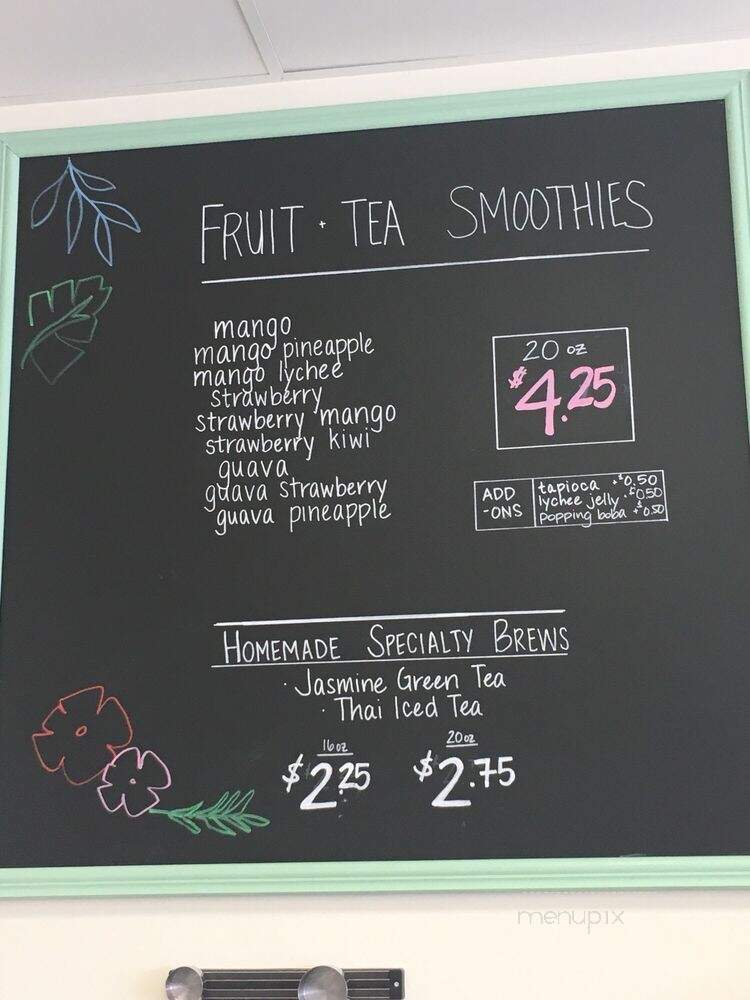 FRUIT · TEA SMOOTHIES
mango
mango pineapple
mango lychee
strawberry
strawberry mango
strawberry kiwi
guava
guava strawberry
guava pineapple
20 oz
$4.25
ADD
-ONS
tapioca +$0.50
lychee jelly +$0.50
popping boba +$0.50
HOMEMADE SPECIALTY BREWS
· Jasmine Green Tea
· Thai Iced Tea
16oz
$2.25
20oz
$2.75
menupix